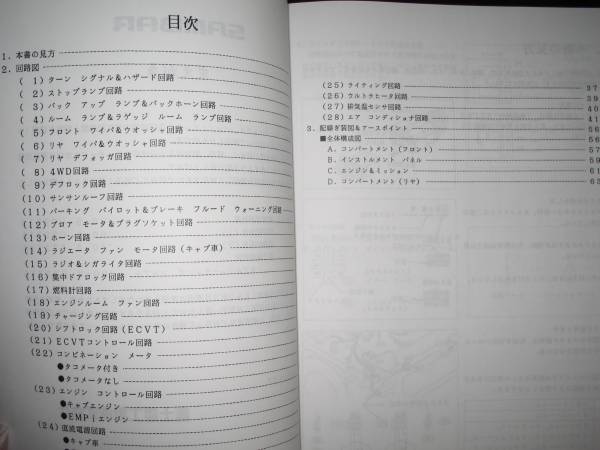 目次
1. 本書の見方
2. 回路図
(1) ターン シグナル＆ハザード回路
(2) ストップランプ回路
(3) バック アップ ランプ＆バックホーン回路
(4) ルーム ランプ＆ラゲッジ ルーム ランプ回路
(5) フロント ワイパ＆ウオッシャ回路
(6) リヤ ワイパ＆ウオッシャ回路
(7) リヤ デフォッガ回路
(8) 4WD回路
(9) デフロック回路
(10) サンサンルーフ回路
(11) パーキング パイロット＆ブレーキ フルード ウォーニング回路
(12) ブロア モータ＆プラグソケット回路
(13) ホーン回路
(14) ラジエータ ファン モータ回路(キャブ車)
(15) ラジオ＆シガライタ回路
(16) 集中ドアロック回路
(17) 燃料計回路
(18) エンジンルーム ファン回路
(19) チャージング回路
(20) シフトロック回路(ECVT)
(21) ECVTコントロール回路
(22) コンビネーション メータ
●タコメータ付き
●タコメータなし
(23) エンジン コントロール回路
●キャブエンジン
●EMPiエンジン
(24) 直流電源回路
●キャブ車
(25) ライティング回路 37
(26) ウルトラヒータ回路 39
(27) 排気温センサ回路 40
(28) エア コンディショナ回路 41
3. 配線ぎ装図＆アースポイント 56
■全体構成図 56
A. コンパートメント(フロント) 57
B. インストルメント パネル 59
C. エンジン＆ミッション 61
D. コンパートメント(リヤ) 63